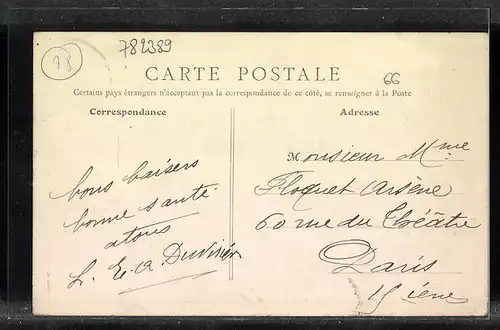 98
782389
66
CARTE POSTALE
Certains pays étrangers n'acceptant pas la correspondance de ce côté, se renseigner à la Poste
Correspondance
Adresse
bons baisers
bonne santé
atous
L. E. A. Duvivier
Monsieur Mme
Floquet Arsène
60 rue du théâtre
Paris
15 ième